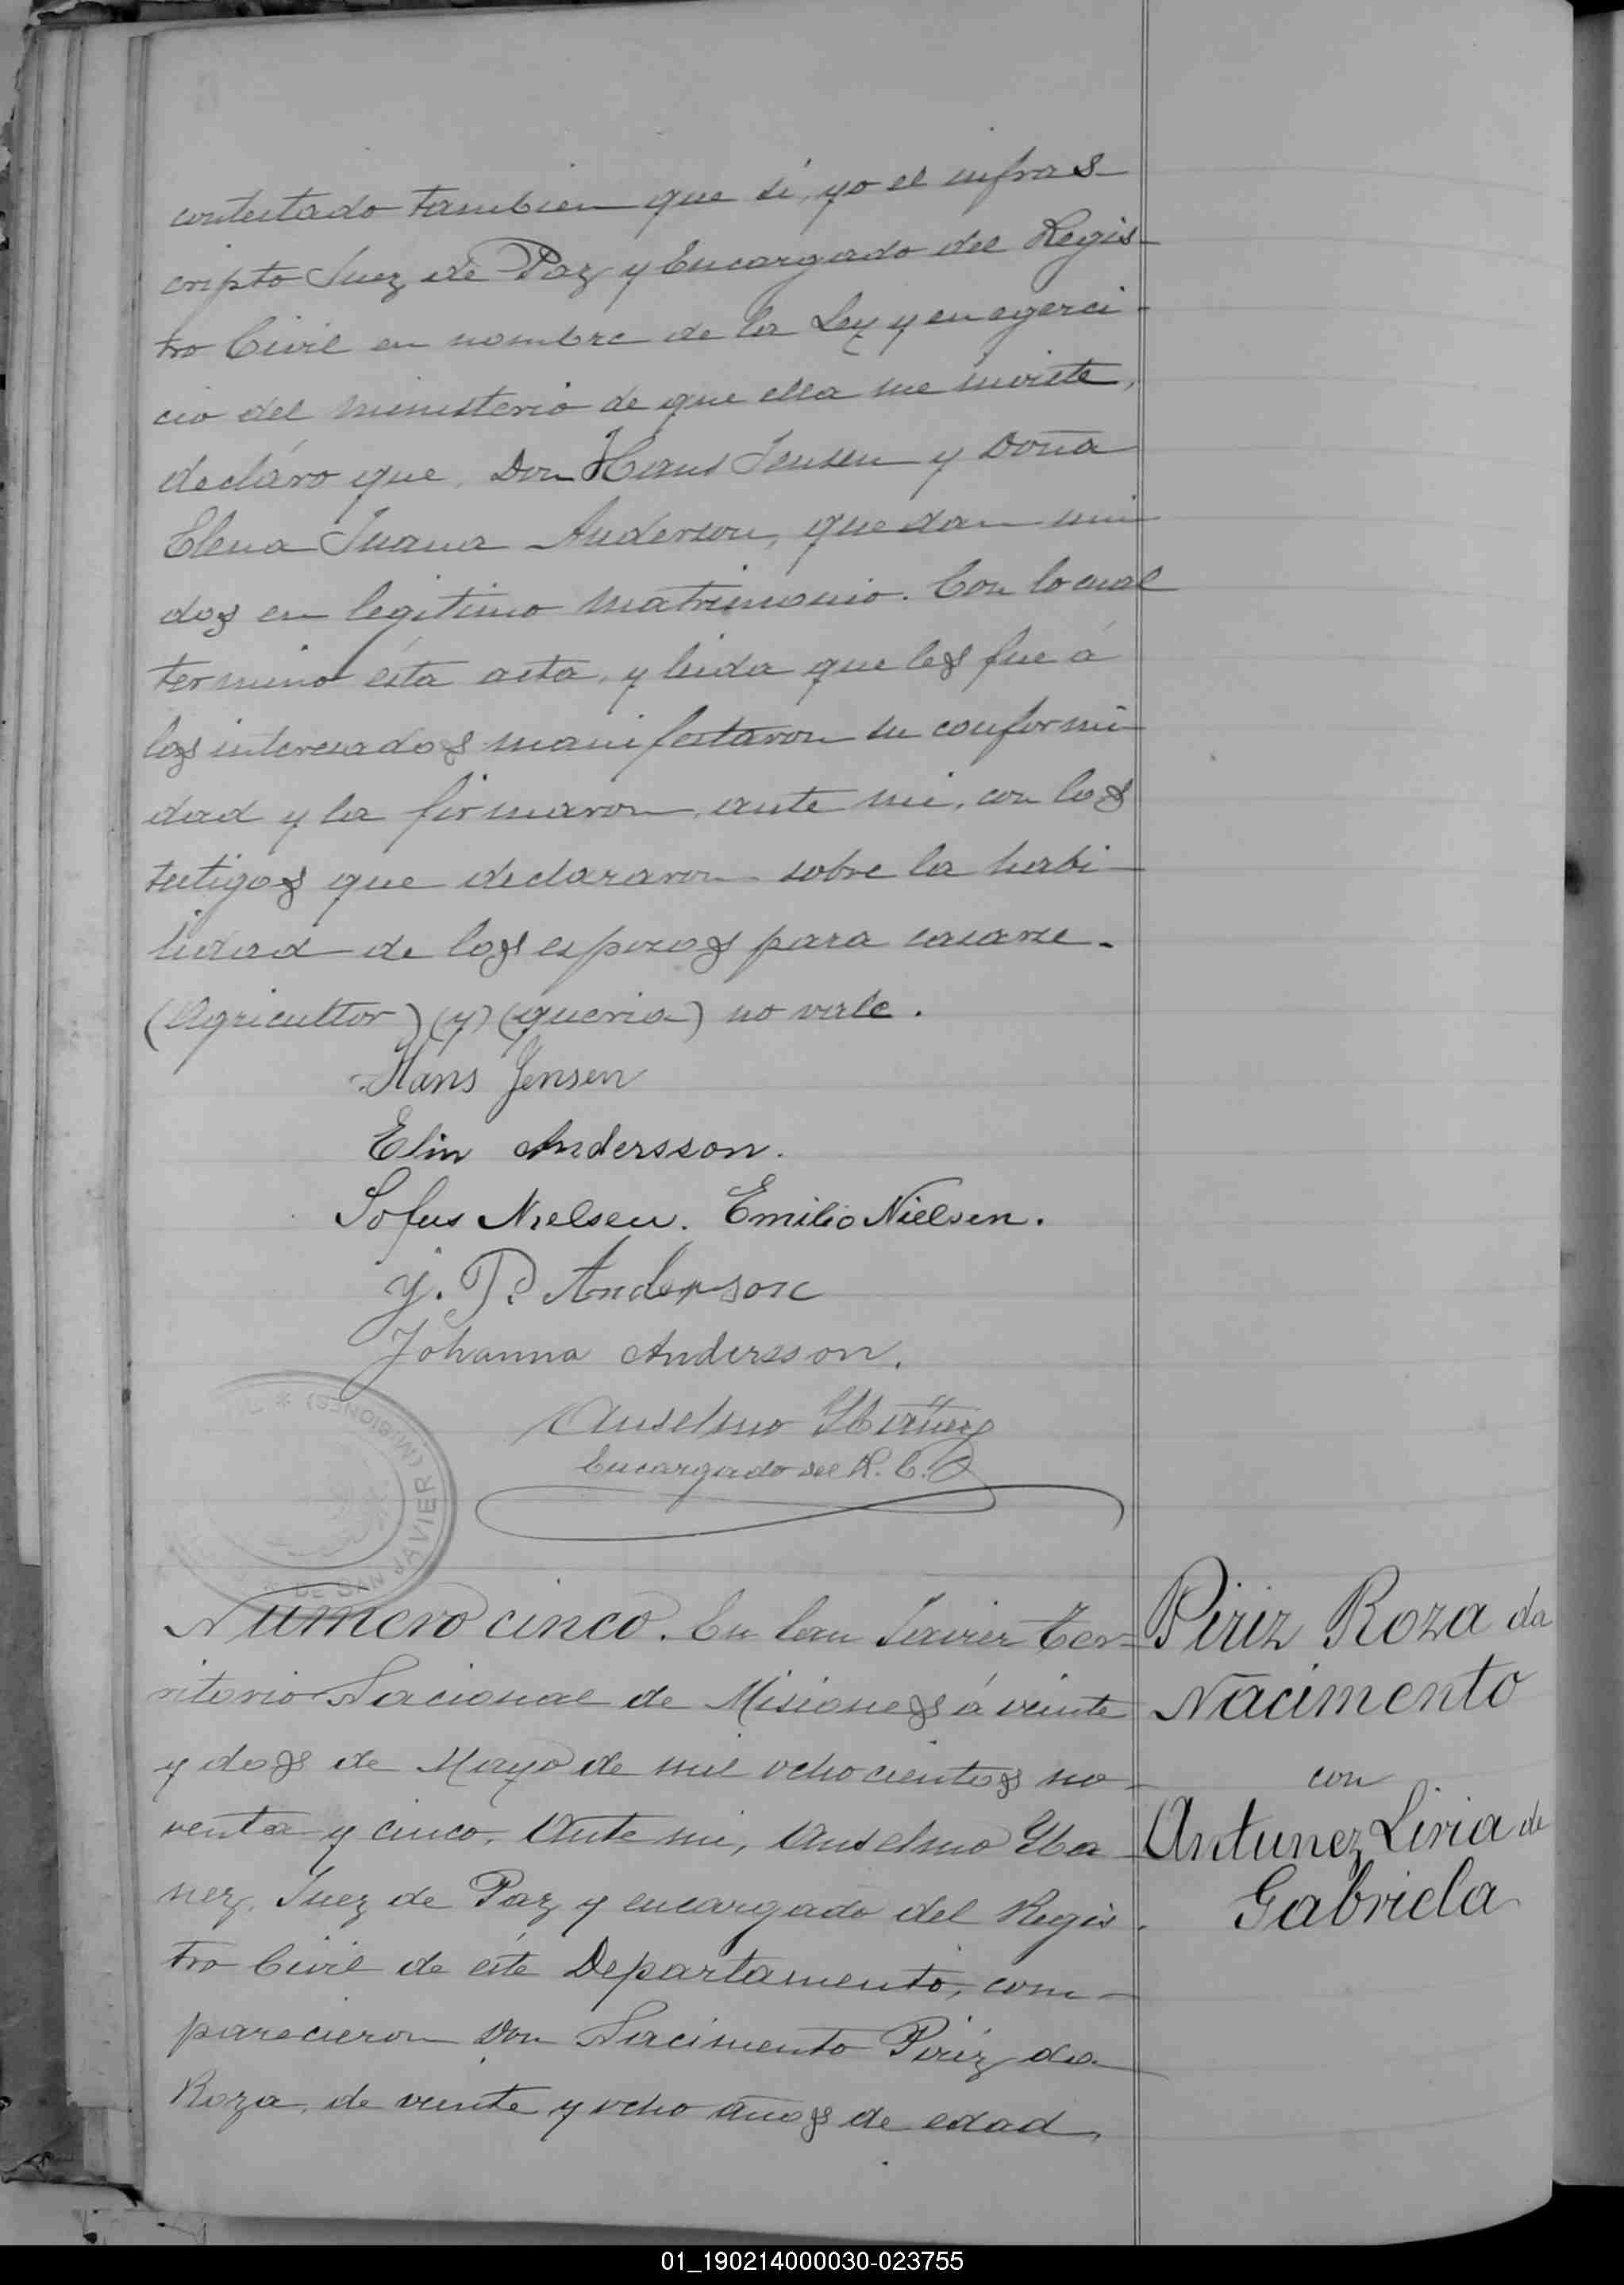 contestado tambien que si, yo el infras-
cripto Juez de Paz y Encargado del Regis-
tro Civil en nombre de la Ley y en egerci-
cio del ministerio de que ella me inviste,
decláro que, Don Hans Jensen y Doña
Elena Juana Anderson, quedan uni-
dos en legitimo matrimonio. Con lo cual
terminó ésta acta, y leida que les fue á
los interesados manifestaron su conformi-
dad y la firmaron, ante mi, con los
testigos que declararon sobre la habi-
lidad de los esposos para casarse.-
(Agricultor) (y) (queria) no vale.
Hans Jensen
Elin Andersson.
Sofus Nielsen. Emilio Nielsen.
J. P. Anderson
Johanna Andersson.
Anselmo Ybañez
Encargado del R. C.
DE SAN JAVIER (MISIONES) *
Numero cinco. En San Javier Ter-
ritorio Nacional de Misiones á veinte
y dos de Mayo de mil ochocientos no-
venta y cinco. Ante mi, Anselmo Yba-
nez, Juez de Paz y encargado del Regis-
tro Civil de éste Departamento, com-
parecieron Don Nacimento Piriz da
Roza, de veinte y ocho años de edad,
Piriz Roza da
Nacimento
con
Antunez Liria de
Gabriela
01_190214000030-023755